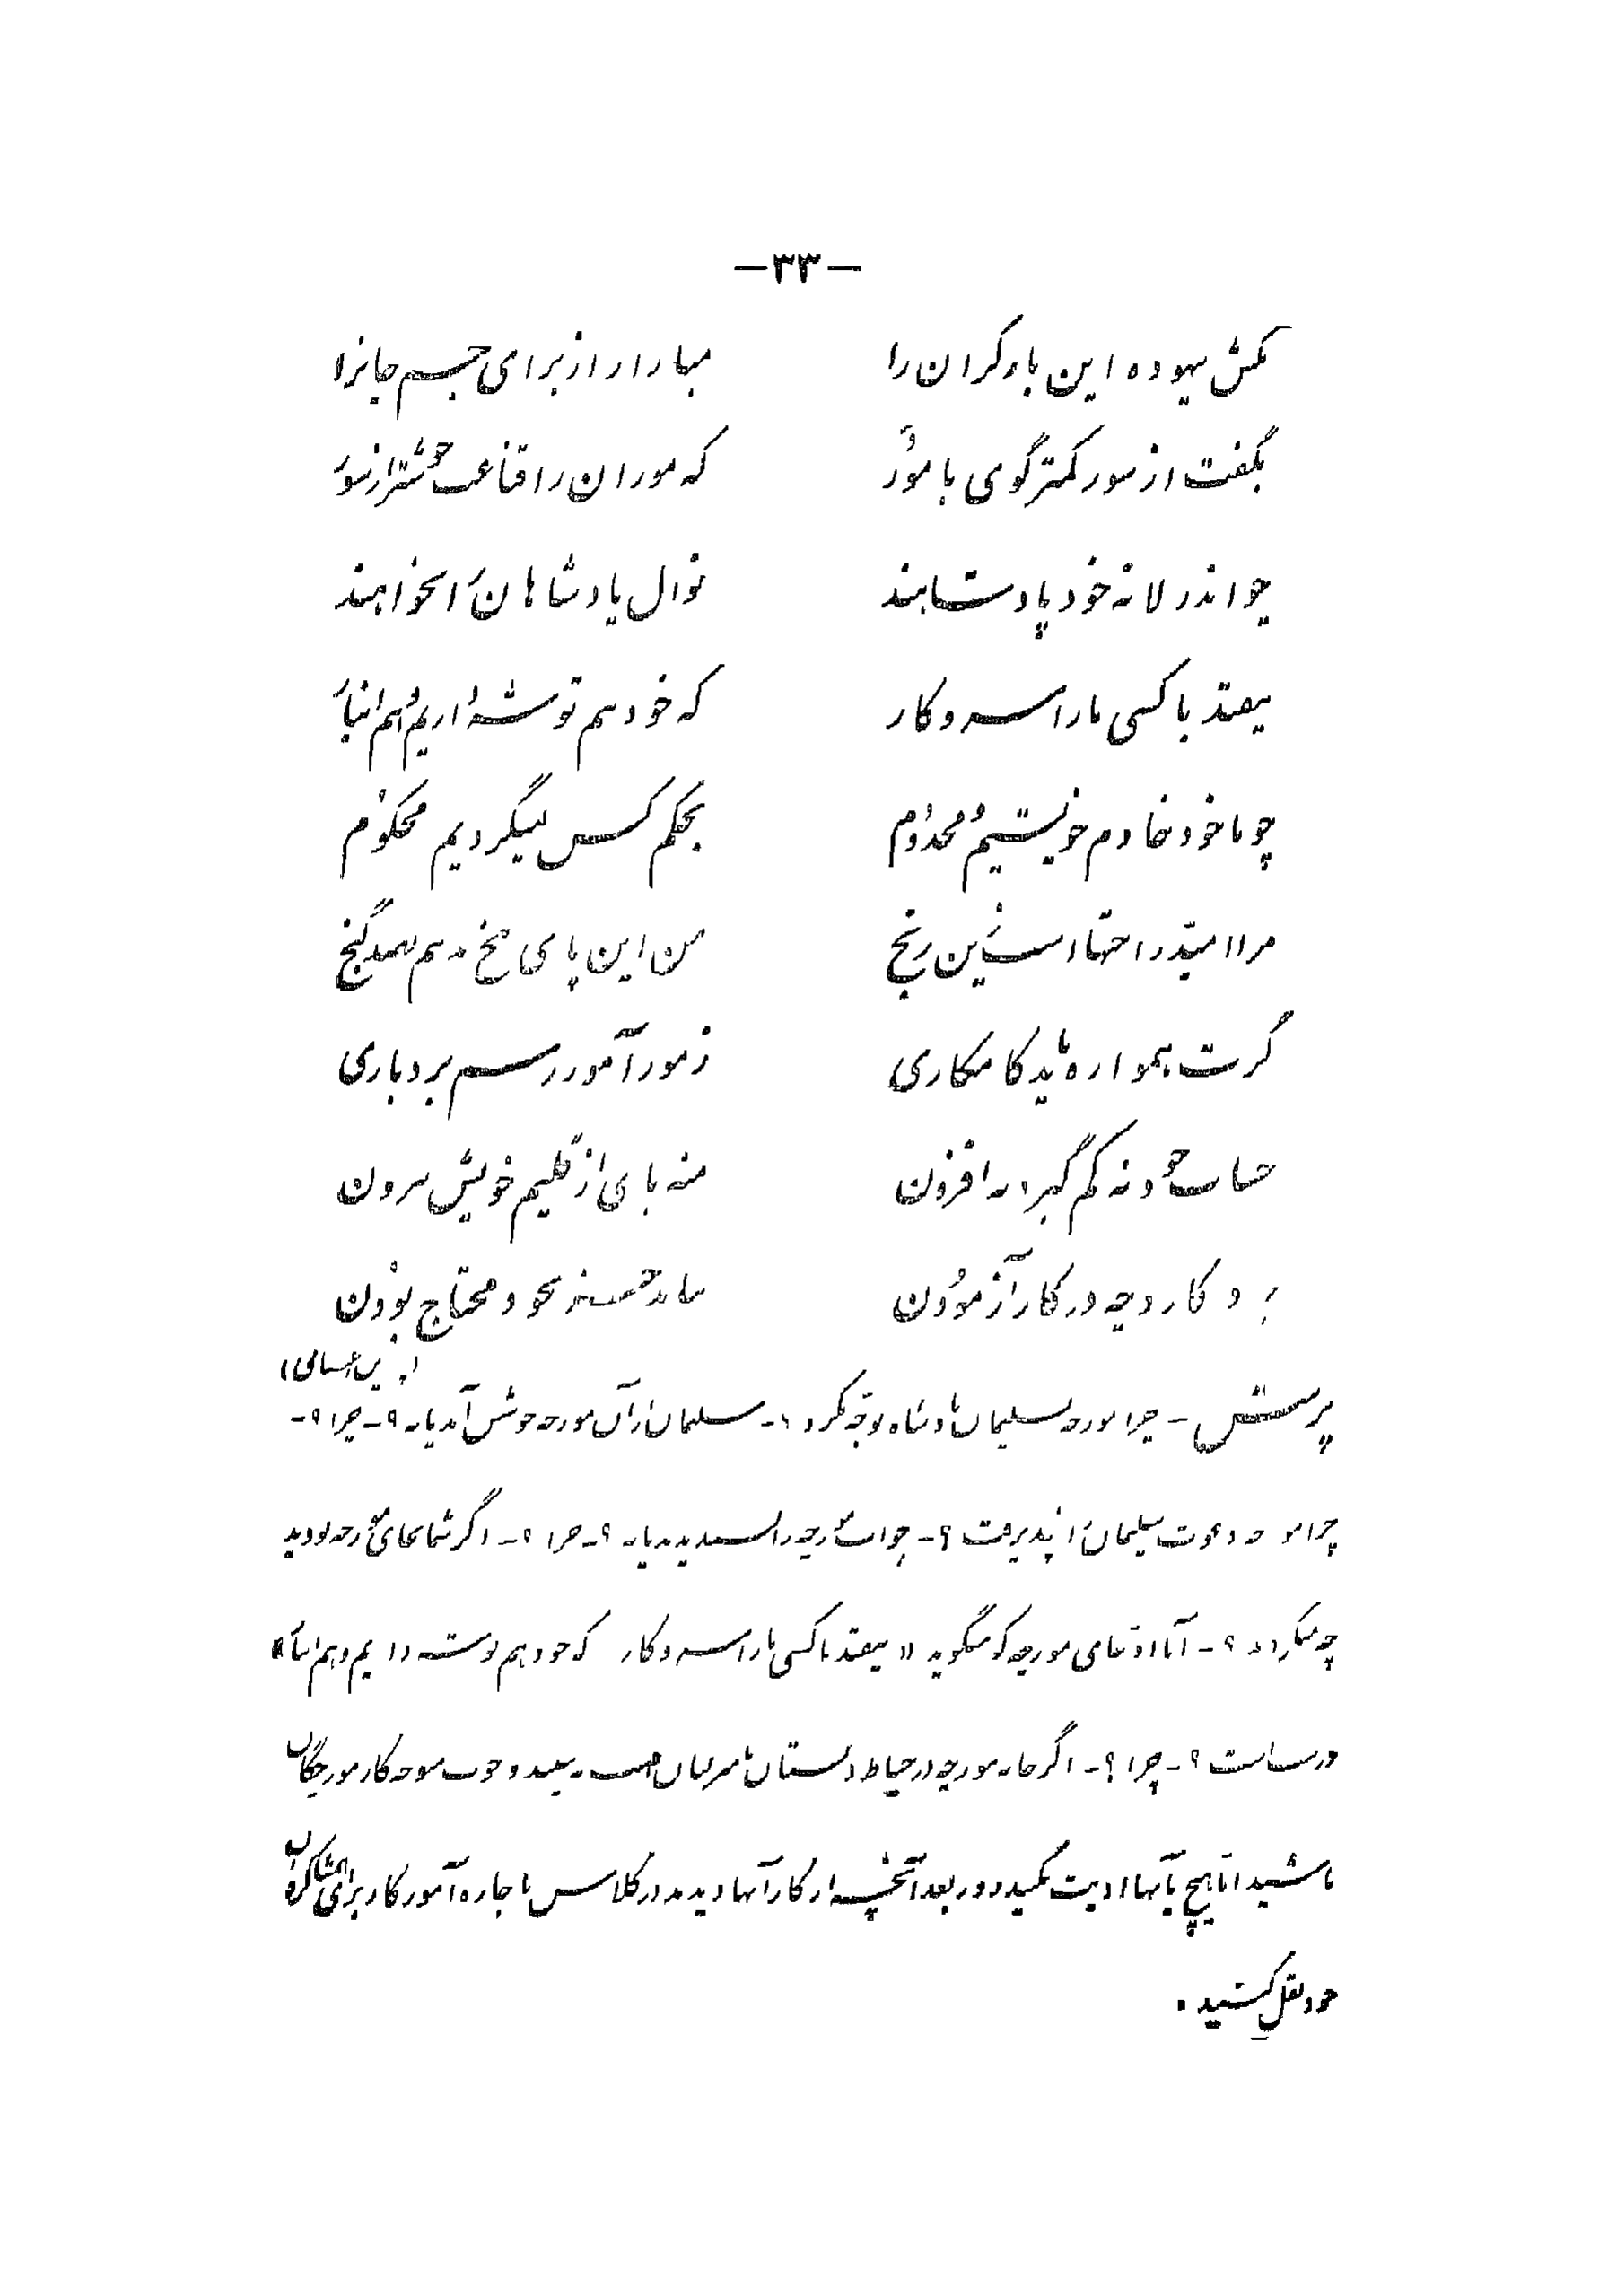 -۳۳-
مکش بیهوده این بار گران را میازار از برای جسم جانرا
بگفت از سور کمتر گوی با مور که موران را قناعت خوشتر از سور
چو اندر لانه خود پادشاهند نوال پادشاهان را نخواهند
نیفتد با کسی ما را سر و کار که خود هم توشه داریم و هم انبار
چو ما خود خادم خویشیم و مخدوم بحکم کس نمیگردیم محکوم
مرا امید راحتهاست زین رنج من این پای ملخ ندهم بصد گنج
گرت همواره باید کامکاری ز مور آموز رسم بردباری
حساب خود نه کم گیر و نه افزون منه پای از گلیم خویش بیرون
چه در کار و چه در کار آزمودن نباید جز بخود محتاج بودن
(پروین اعتصامی)
پرسش - چرا مورچه بسلیمان پادشاه توجه نکرد ؟- سلیمان از آن مورچه خوشش آمد یا نه ؟- چرا ؟-
چرا مورچه دعوت سلیمان را نپذیرفت ؟- جواب مورچه را پسندیدید یا نه ؟- چرا ؟- اگر شما بجای مورچه بودید
چه میکردید ؟- آیا ادعای مورچه که میگوید « نیفتد با کسی ما را سر و کار که خود هم توشه داریم و هم انبار »
درست است ؟- چرا ؟- اگر خانه مورچه در حیاط دبستان یا منزلتان هست ببینید و خوب متوجه کار مورچگان
باشید اما هیچ بآنها اذیت نکنید و روز بعد آنچه از کار آنها دیدید در کلاس با اجازه آموزگار برای همشاگردان
خود نقل کنید .